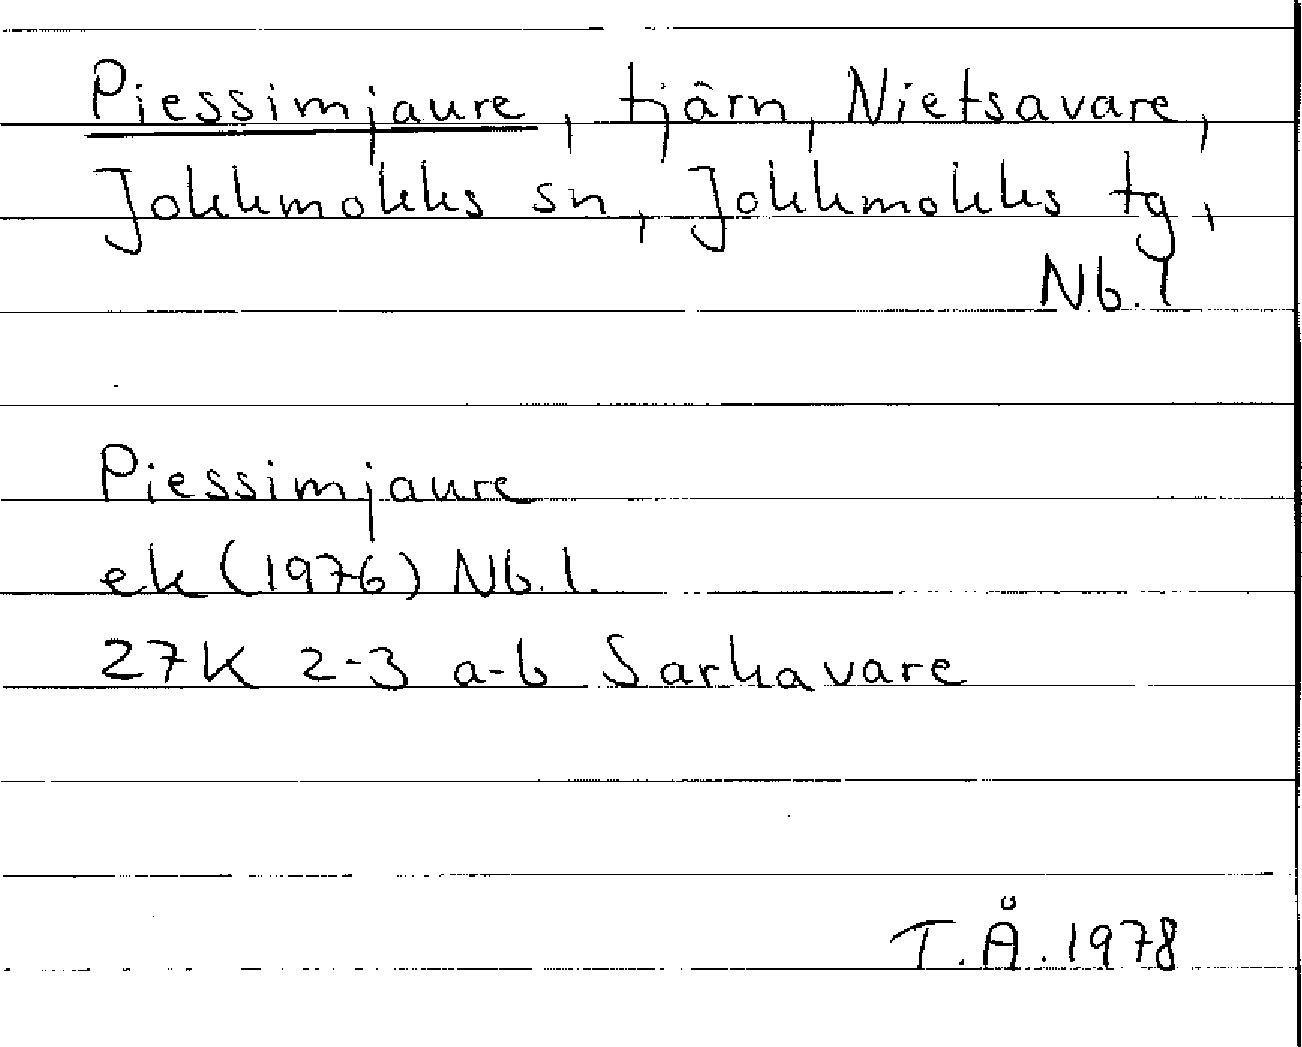 Piessimjaure, tjärn, Nietsavare,
Jokkmokks sn, Jokkmokks tg,
Nb.l
Piessimjaure
ek (1976) Nb.l.
27K 2-3 a-b Sarkavare
T.Å.1978